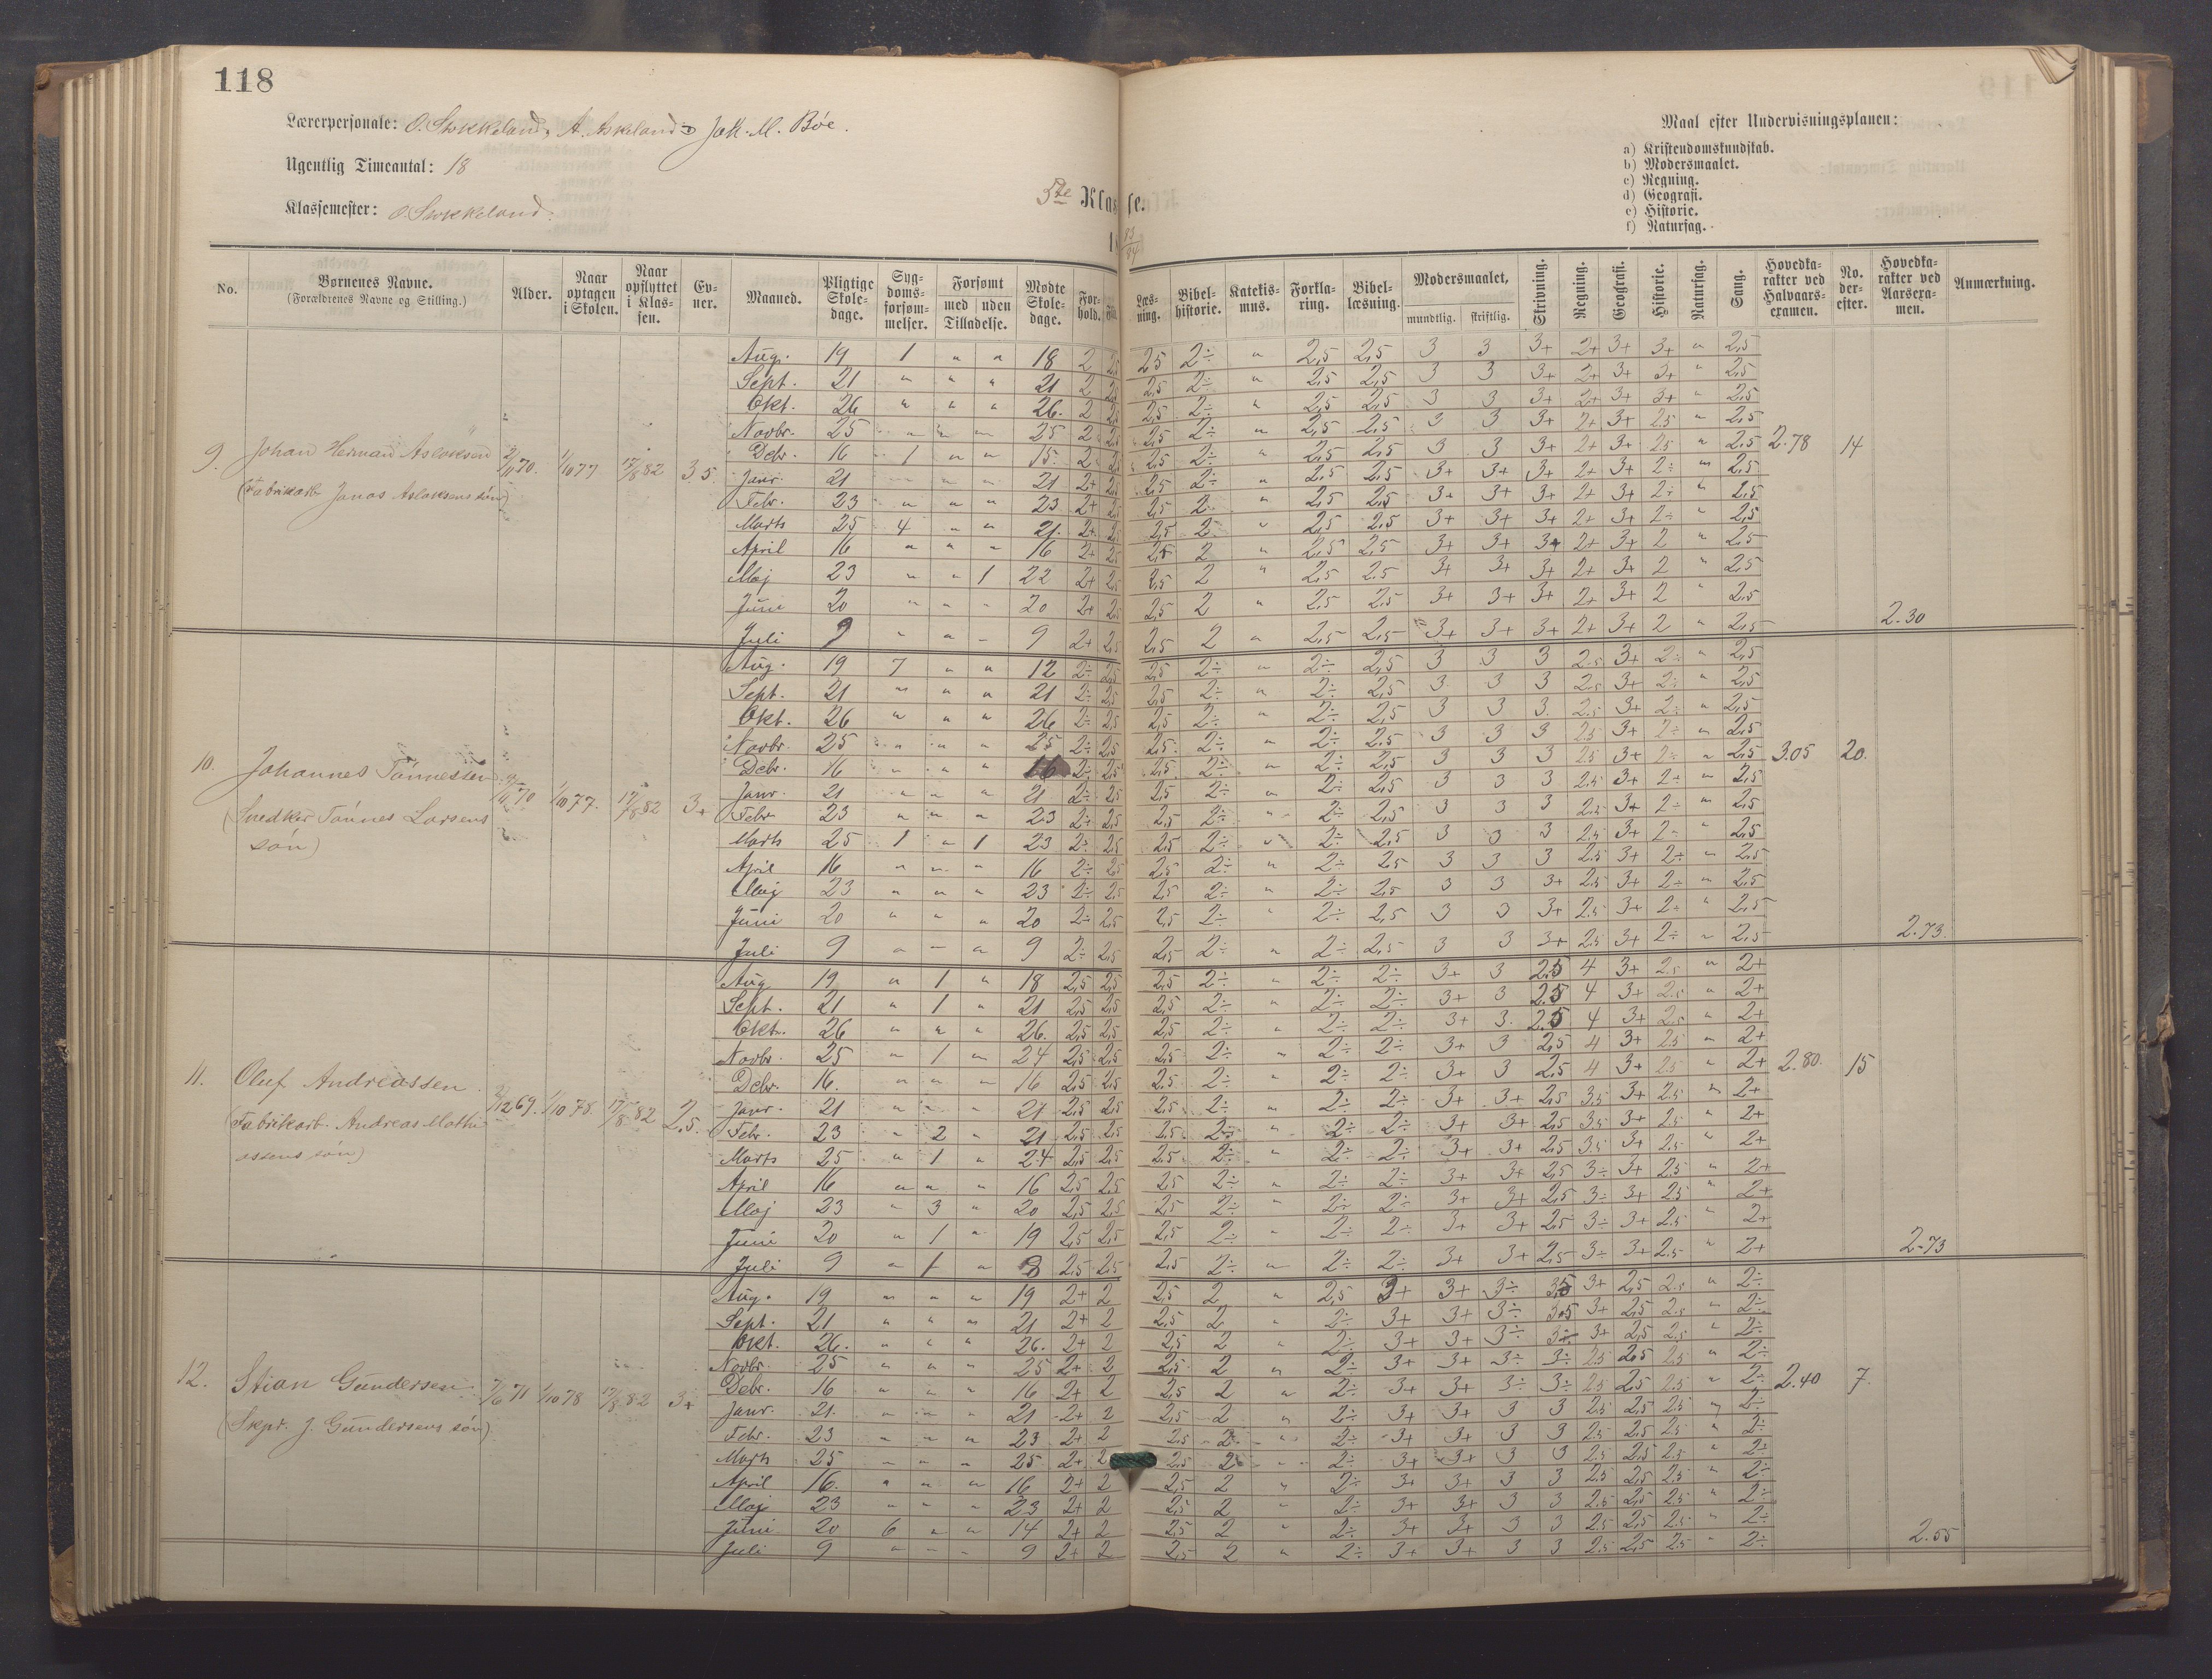 118
Lærerpersonale: O. Stokkeland, A. Askeland Jak. M. Bøe.
Ugentlig Timeantal: 18
Klassemester: O. Stokkeland.
5te Klasse.
18 83/84
Maal efter Undervisningsplanen:
a) Kristendomskundskab.
b) Modersmaalet.
c) Regning.
d) Geografi.
e) Historie.
f) Naturfag.
No. Børnenes Navne. (Forældrenes Navne og Stilling.) Alder. Naar optagen i Skolen. Naar opflyttet i Klassen. Evner. Maaned. Pligtige Skoledage. Sygdomsforsømmelser. Forsømt med uden Tilladelse. Mødte Skoledage. Forhold. Læsning. Bibelhistorie. Katekismus. Forklaring. Bibellæsning. Modersmaalet, mundtlig. skriftlig. Skrivning. Regning. Geografi. Historie. Naturfag. Sang. Hovedkarakter ved Halvaarsexamen. No. derefter. Hovedkarakter ved Aarsexamen. Anmærkning.
9. Johan Herman Aslaksen
(Fabrikarb. Jonas Aslaksens søn)
2/11 70. 1/10 77 17/8 82 3.5
Aug. 19 1 " " 18 2 2,5 2,5 2÷ " 2,5 2,5 3 3 3+ 2+ 3+ 3+ " 2,5
Sept. 21 " " " 21 2 2,5 2,5 2÷ " 2,5 2,5 3 3 3+ 2+ 3+ 3+ " 2,5
Okt. 26 " " " 26. 2 2,5 2,5 2÷ " 2,5 2,5 3 3 3+ 2+ 3+ 3+ " 2,5
Novbr. 25 " " " 25 2 2,5 2,5 2÷ " 2,5 2,5 3 3 3+ 2+ 3+ 2.5 " 2,5
Debr. 16 1 " " 15. 2 2,5 2,5 2÷ " 2,5 2,5 3 3 3+ 2+ 3+ 2,5 " 2,5 2.78 14
Janr. 21 " " " 21 2+ 2,5 2,5 2÷ " 2,5 2,5 3+ 3+ 3+ 2+ 3+ 2÷ " 2,5
Febr. 23 " " " 23 2+ 2,5 2,5 2 " 2,5 2,5 3+ 3+ 3+ 2+ 3+ 2÷ " 2,5
Marts 25 4 " " 21. 2+ 2,5 2,5 2 " 2,5 2,5 3+ 3+ 3+ 2+ 3+ 2÷ " 2,5
April 16 " " " 16 2+ 2,5 2,5 2 " 2,5 2,5 3+ 3+ 3+ 2+ 3+ 2 " 2,5
Maj 23 " " 1 22 2+ 2,5 2,5 2 " 2,5 2.5 3+ 3+ 3+ 2+ 3+ 2 " 2,5
Juni 20 " " " 20 2+ 2,5 2,5 2 " 2,5 2,5 3+ 3+ 3+ 2+ 3+ 2 " 2,5
Juli 9 " " " 9 2+ 2,5 2,5 2 " 2,5 2,5 3+ 3+ 3+ 2+ 3+ 2 " 2,5 2.30
10. Johannes Tönnessen
(Snedker Tönnes Larsens
søn)
11 70 1/10 77. 17/8 82 3+
Aug. 19 7 " " 12 2÷ 2,5 2,5 2÷ " 2÷ 2,5 3 3 3 2.5 3+ 2÷ " 2,5
Sept. 21 " " " 21 2÷ 2,5 2,5 2÷ " 2÷ 2,5 3 3 3 2.5 3+ 2÷ " 2,5
Okt. 26 " " " 26 2÷ 2,5 2,5 2÷ " 2÷ 2,5 3 3 3. 2.5 3+ 2÷ " 2,5
Novbr. 25 " " " 25 2÷ 2,5 2,5. 2÷ " 2÷ 2,5 3 3 3 2.5 3+ 2÷ " 2,5
Debr. 16 " " " 16 2÷ 2,5 2,5. 2÷ " 2÷ 2,5 3 3 3 2.5 3+ 2÷ " 2,5 3.05 20.
Janr. 21 " " " 21 2÷ 2,5 2,5 2÷ " 2÷ 2,5 3 3 3 2.5 3+ 2÷ " 2,5
Febr 23 " " " 23 2÷ 2,5 2.5 2÷ " 2÷ 2,5 3 3 3 2.5 3+ 2÷ " 2,5
Marts 25 1 " 1 23 2÷ 2,5 2,5 2÷ " 2÷ 2,5 3 3 3 2.5 3+ 2÷ " 2,5
April 16 " " " 16 2÷ 2,5 2,5 2÷ " 2÷ 2,5 3 3 3 2.5 3+ 2÷ " 2,5
Maj 23 " " " 23 2÷ 2,5 2,5 2÷ " 2÷ 2,5 3 3 3+ 2.5 3+ 2÷ " 2,5
Juni 20 " " " 20 2÷ 2,5 2,5 2÷ " 2÷ 2,5 3 3 3+ 2.5 3+ 2÷ " 2,5
Juli 9 " " " 9 2÷ 2,5 2,5 2÷ " 2÷ 2,5 3 3 3+ 2.5 3+ 2÷ " 2,5 2.73.
11. Oluf Andreassen
(Fabrikarb. Andreas Mathi
assens søn)
12 69. 1/10 78. 17/8 82 2,5.
Aug. 19 " 1 " 18 2,5 2,5 2,5 2÷ " 2÷ 2÷ 3+ 3 2.5 4 3+ 2.5 " 2+
Sept. 21 " 1 " 21 2,5 2,5 2,5 2÷ " 2÷ 2÷ 3+ 3 2.5 4 3+ 2.5 " 2+
Okt. 26 " " " 26. 2,5 2,5 2,5 2÷ " 2÷ 2÷ 3+ 3. 2.5 4 3+ 2.5 " 2+
Novbr. 25 " 1 " 24 2,5 2,5 2,5 2÷ " 2÷ 2÷ 3+ 3 2,5 4 3+ 2.5 " 2+
Debr. 16. " " " 16 2,5 2,5 2,5 2÷ " 2÷ 2÷ 3+ 3 2,5 4 3+ 2.5 " 2+ 2.80. 15
Janr. 21 " " " 21 2,5 2,5 2,5 2÷ " 2÷ 2÷ 3+ 3+ 2,5 3.5 3+ 2.5 " 2+
Febr. 23 " 2 " 21 2,5 2,5 2,5. 2÷ " 2÷ 2÷ 3+ 3+ 2,5 3.5 3+ 2.5 " 2+
Marts 25 " 1 " 24 2,5 2,5 2.5 2÷ " 2÷ 2÷ 3+ 3+ 2,5 3.5 3+ 2.5 " 2+
April 16 " " " 16 2,5 2,5 2,5 2÷ " 2÷ 2÷ 3+ 3+ 2,5 3÷ 3+ 2.5 " 2+
Maj 23 " 3 " 20 2,5 2,5 2,5 2÷ " 2÷ 2÷ 3+ 3+ 2,5 3÷ 3+ 2.5 " 2+
Juni 20 " 1 " 19 2,5 2,5 2,5 2÷ " 2÷ 2÷ 3+ 3+ 2,5 3÷ 3+ 2.5 " 2+
Juli 9 " 1 " 8 2,5 2,5 2,5 2÷ " 2÷ 2÷ 3+ 3+ 2,5 3÷ 3+ 2.5 " 2+ 2.73
12. Stian Gundersen
(Skpr. J. Gundersens søn)
7/6 71 1/10 78 17/8 82 3+
Aug. 19 " " " 19 2+ 2 2,5 2 " 2,5 3+ 3+ 3÷ 3,5 3+ 2,5 2.5 " 2÷
Sept. 21 " " " 21 2+ 2 2,5 2 " 2÷ 3+ 3+ 3÷ 3.5 3+ 2,5 2.5 " 2÷
Okt. 26. " " " 26. 2+ 2 2,5 2 " 2÷ 3+ 3+ 3÷ 3÷ 3+ 2,5 2.5 " 2÷
Novbr. 25 " " " 25 2+ 2 2,5 2 " 2÷ 3+ 3+ 3÷ 3÷ 2.5 2,5 2.5 " 2÷
Debr. 16 " " " 16 2+ 2 2,5 2 " 2÷ 3+ 3+ 3÷ 3÷ 2.5 2,5 2.5 " 2÷ 2.40 7.
Janr. 21. " " " 21 2+ 2 2,5 2 " 2÷ 3+ 3+ 3 3 2.5 2,5 2.5 " 2÷
Febr. 23 " " " 23 2+ 2 2,5 2 " 2÷ 3+ 3+ 3 3 2.5 2,5 2.5 " 2÷
Marts 25 " " " 25 2+ 2 2,5 2 " 2÷ 3+ 3+ 3 3 2.5 2,5 2.5 " 2÷
April 16. " " " 16 2+ 2 2,5 2 " 2÷ 3+ 3+ 3 3 2.5 2,5 2.5 " 2÷
Maj 23 " " " 23 2+ 2 2,5 2 " 2÷ 3+ 3+ 3 3 2.5 2,5 2.5 " 2÷
Juni 20 6 " " 14 2+ 2 2,5 2 " 2÷ 3+ 3+ 3 3 2.5 2,5 2.5 " 2÷
Juli 9 " " " 9 2+ 2 2,5 2 " 2÷ 3+ 3+ 3 3 2.5 2,5 2.5 " 2÷ 2.55